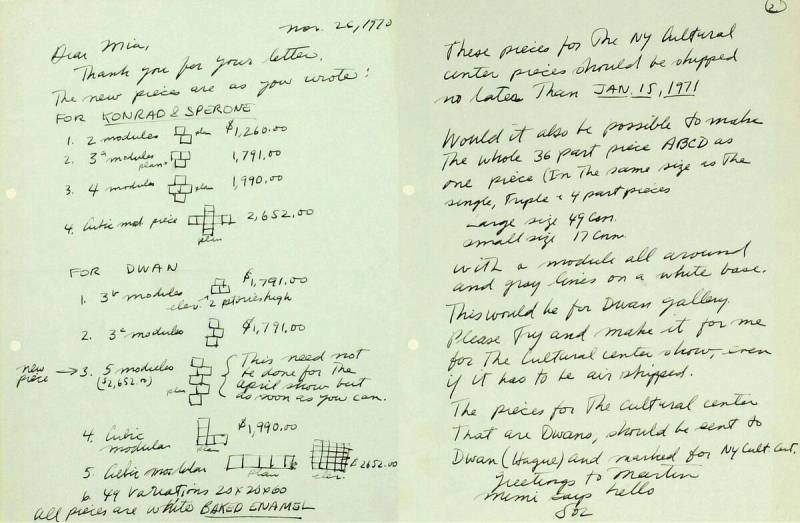 Nov. 26, 1970
Dear Mia,
Thank you for your letter.
The new pieces are as you wrote:
FOR KONRAD & SPERONE
1. 2 modules plan $1,260.00
2. 3a modules plan 1,791.00
3. 4 modules plan 1,990.00
4. Cubic mod piece 2,652.00
plan
FOR DWAN
1. 3b modules $1,791.00
elev. 2 stories high
2. 3c modules $1,791.00
new piece → 3. 5 modules
($2,652.00)
plan
This need not
be done for the
April show but
as soon as you can.
4. Cubic modular $1,990.00
plan
5. Cubic modular plan elev. $2652.00
6. 49 Variations 20x20x60
All pieces are white BAKED ENAMEL
2
These pieces for The NY Cultural
center pieces should be shipped
no later Than JAN. 15, 1971
Would it also be possible to make
The whole 36 part piece ABCD as
one piece (In The same size as The
single, Triple & 4 part pieces
Large size 49 cm.
small size 17 cm
with a module all around
and gray lines on a white base.
This would be for Dwan gallery.
Please Try and make it for me
for The Cultural center show, even
if it has to be air shipped.
The pieces for The Cultural center
That are Dwans, should be sent to
Dwan (Hague) and marked for NY Cult. Cent.
Greetings to Martin
Mimi says hello
Sol